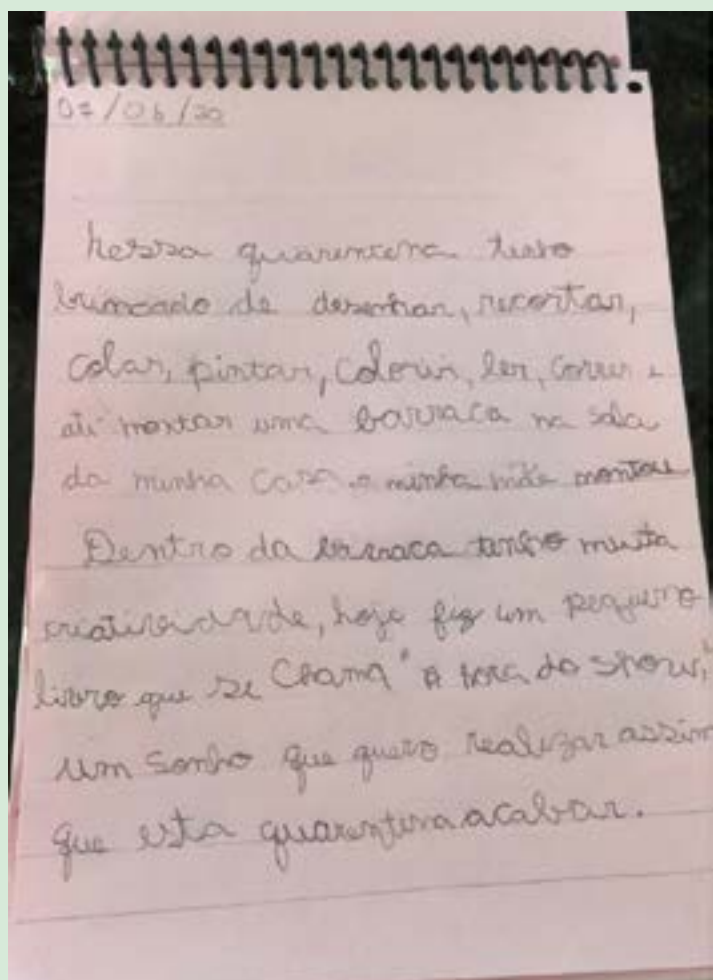 07/06/20
Nessa quarentena tenho
brincado de desenhar, recortar,
colar, pintar, colorir, ler, correr e
até montar uma barraca na sala
da minha casa, a minha mãe montou
Dentro da barraca tenho muita
criatividade, hoje fiz um pequeno
livro que se chama "A hora do show,"
um sonho que quero realizar assim
que esta quarentena acabar.